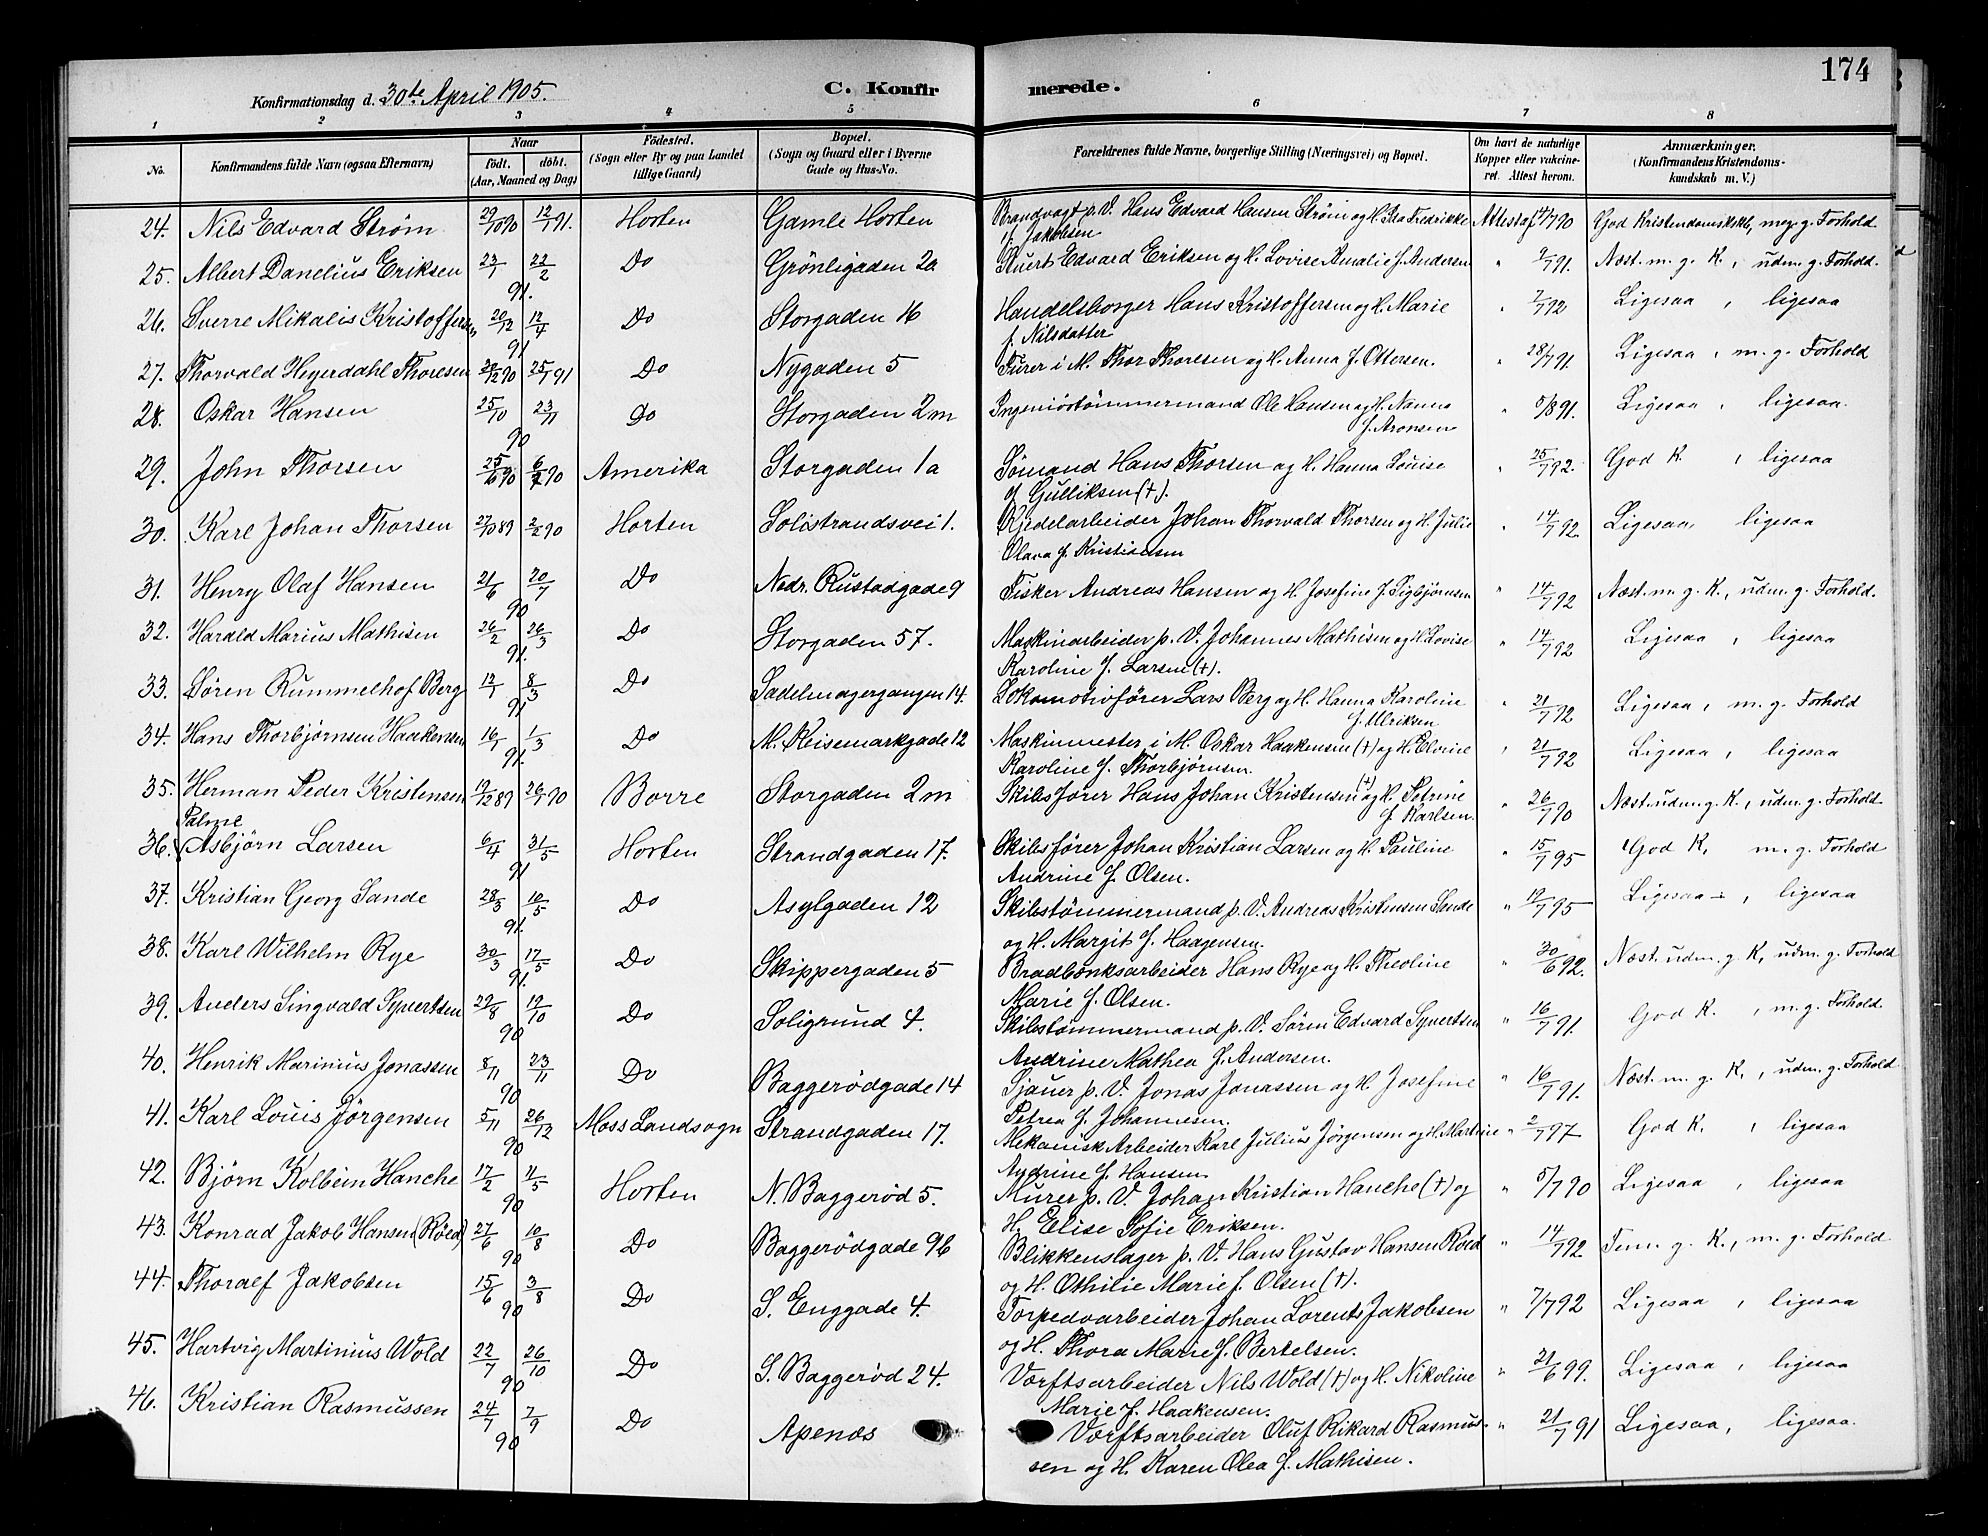 174
Konfirmationsdag d. 30te April 1905.
C. Konfir
merede.
1 2 3 4 5 6 7 8
No.
Konfirmandens fulde Navn (ogsaa Efternavn)
Naar
født. døbt.
(Aar, Maaned og Dag)
Fødested.
(Sogn eller By og paa Landet
tillige Gaard)
Bopæl.
(Sogn og Gaard eller i Byerne
Gade og Hus-No.
Forældrenes fulde Navne, borgerlige Stilling (Næringsvei) og Bopæl.
Om havt de naturlige
Kopper eller vakcine-
ret. Attest herom.
Anmærkninger.
(Konfirmandens Kristendoms-
kundskab m. V.)
24. Nils Edvard Strøm 29/10 90 12/7 91. Horten Gamle Horten Brandvagt p. V. Hans Edvard Hansen Strøm og H. Ida Fredrikke Attest af 4/7 90 God Kristendomskskb, meg. g. Forhold
f. Jakobsen
25. Albert Danelius Eriksen 23/1 22/2 91. Do Grønligaden 20 Stuert Edvard Eriksen og H. Lovise Amalie f. Andersen " 9/7 91. Næst. m. g. K., udm. g. Forhold.
26. Sverre Mikalis Kristoffersen 20/12 12/4 91 Do Storgaden 16 Handelsborger Hans Kristoffersen og H. Marie " 7/7 92 Ligesaa, ligesaa
f. Nilsdatter
27. Thorvald Heyerdahl Thoresen 20/12 90 25/7 91 Do Nygaden 5 Furer i M. Thor Thoresen og H. Anna f. Ottersen. " 28/7 91. Ligesaa, m. g. Forhold
28. Oskar Hansen 25/10 23/11 90 Do Storgaden 2m Ingeniørtømmermand Ole Hansen og H. Nanna " 5/8 91. Ligesaa, ligesaa.
f. Aronsen
29. John Thorsen 25/6 90 6/7 90 Amerika Storgaden 1a Sømand Hans Thorsen og H. Hanna Louise " 25/7 92. God K., ligesaa
f. Gulliksen (+).
30. Karl Johan Thorsen 27/10 89 2/2 90 Horten Solistrandsvei 1. Kjedelarbeider Johan Thorvald Thorsen og H. Julie " 14/7 92. Ligesaa, ligesaa
Olava f. Kristiansen
31. Henry Olaf Hansen 21/6 20/7 90 Do Nedr. Rustadgade 9 Fisker Andreas Hansen og H. Josefine f. Sigbjørnsen " 14/7 92 Næst. m. g. K., udm. g. Forhold.
32. Harald Marius Mathisen 26/2 26/3 91. Do Storgaden 57. Maskinarbeider p. V. Johannes Mathisen og H. Lovise " 14/7 92 Ligesaa, ligesaa
Karoline f. Larsen (+).
33. Søren Rummelhof Berg 12/1 8/3 91 Do Sadelmagergangen 14. Lokomotivfører Lars Berg og H. Hanna Karoline " 21/7 92 Ligesaa, m. g. Forhold
f. Ulriksen
34. Hans Thorbjørnsen Haakensen 16/1 1/3 91. Do M. Reisemarkgade 12 Maskinmester i M. Oskar Haakensen (+) og H. Elvine " 21/7 92 Ligesaa, ligesaa
Karoline f. Thorbjørnsen.
35. Herman Peder Kristensen 19/12 89 26/7 90 Borre Storgaden 2m Skibsfører Hans Johan Kristensen (+) og H. Petrine " 26/7 90 Næst. udm. g. K., udm. g. Forhold
f. Karlsen.
Palme
36. Asbjørn Larsen 6/4 31/5 91 Horten Strandgaden 17. Skibsfører Johan Kristian Larsen og H. Pauline " 15/7 95 God K, m. g. Forhold
Andrine f. Olsen.
37. Kristian Georg Sande 28/3 10/5 91. Do Asylgaden 12 Skibstømmermand p. V. Andreas Kristensen Sande " 19/7 95 Ligesaa, ligesaa
og H. Margit f. Haagensen.
38. Karl Wilhelm Rye 30/3 17/5 91. Do Skippergaden 5 Bradbænksarbeider Hans Rye og H. Theoline " 30/6 92. Næst. udm. g. K, udm. g. Forhold
Marie f. Olsen.
39. Anders Singvald Syvertsen 22/8 19/10 90 Do Soligrund 4. Skibstømmermand p. V. Søren Edvard Syvertsen " 16/7 91. God K., m. g. Forhold
Andrine Mathea f. Andersen.
40. Henrik Marinius Jonassen 8/11 23/11 90 Do Baggerødgade 14 Sjauer p. V. Jonas Jonassen og H. Josefine " 16/7 91. Næst. m. g. K., udm. g. Forhold
Petrea f. Johannesen.
41. Karl Louis Jørgensen 5/11 26/12 90 Moss Landsogn Strandgaden 17. Mekanisk Arbeider Karl Julius Jørgensen og H. Martine " 2/7 97 God K., ligesaa
Andrine f. Hansen
42. Bjørn Kolbein Hanche 17/2 11/5 90 Horten N. Baggerød 5. Murer p. V. Johan Kristian Hanche (+) og " 5/7 90 Ligesaa, ligesaa
H. Elise Sofie Eriksen.
43. Konrad Jakob Hansen (Røed) 27/6 10/8 90 Do Baggerødgade 96 Blikkenslager p. V. Hans Gustav Hansen Røed " 14/7 92 Tem. g. K., m. g. Forhold
og H. Othilie Marie f. Olsen (+).
44. Thoralf Jakobsen 15/6 3/8 90 Do S. Enggade 4. Torpedoarbeider Johan Lorents Jakobsen " 7/7 92 Ligesaa, ligesaa
og H. Thora Marie f. Bertelsen.
45. Hartvig Martinius Wold 22/7 26/10 90 Do S. Baggerød 24. Værftsarbeider Nils Wold (+) og H. Nikoline " 21/6 99. Ligesaa, ligesaa
Marie f. Haakensen.
46. Kristian Rasmussen 24/7 7/9 90 Do Apenæs Værftsarbeider Oluf Rikard Rasmus- " 21/7 91 Ligesaa, ligesaa.
sen og H. Karen Olea f. Mathisen.